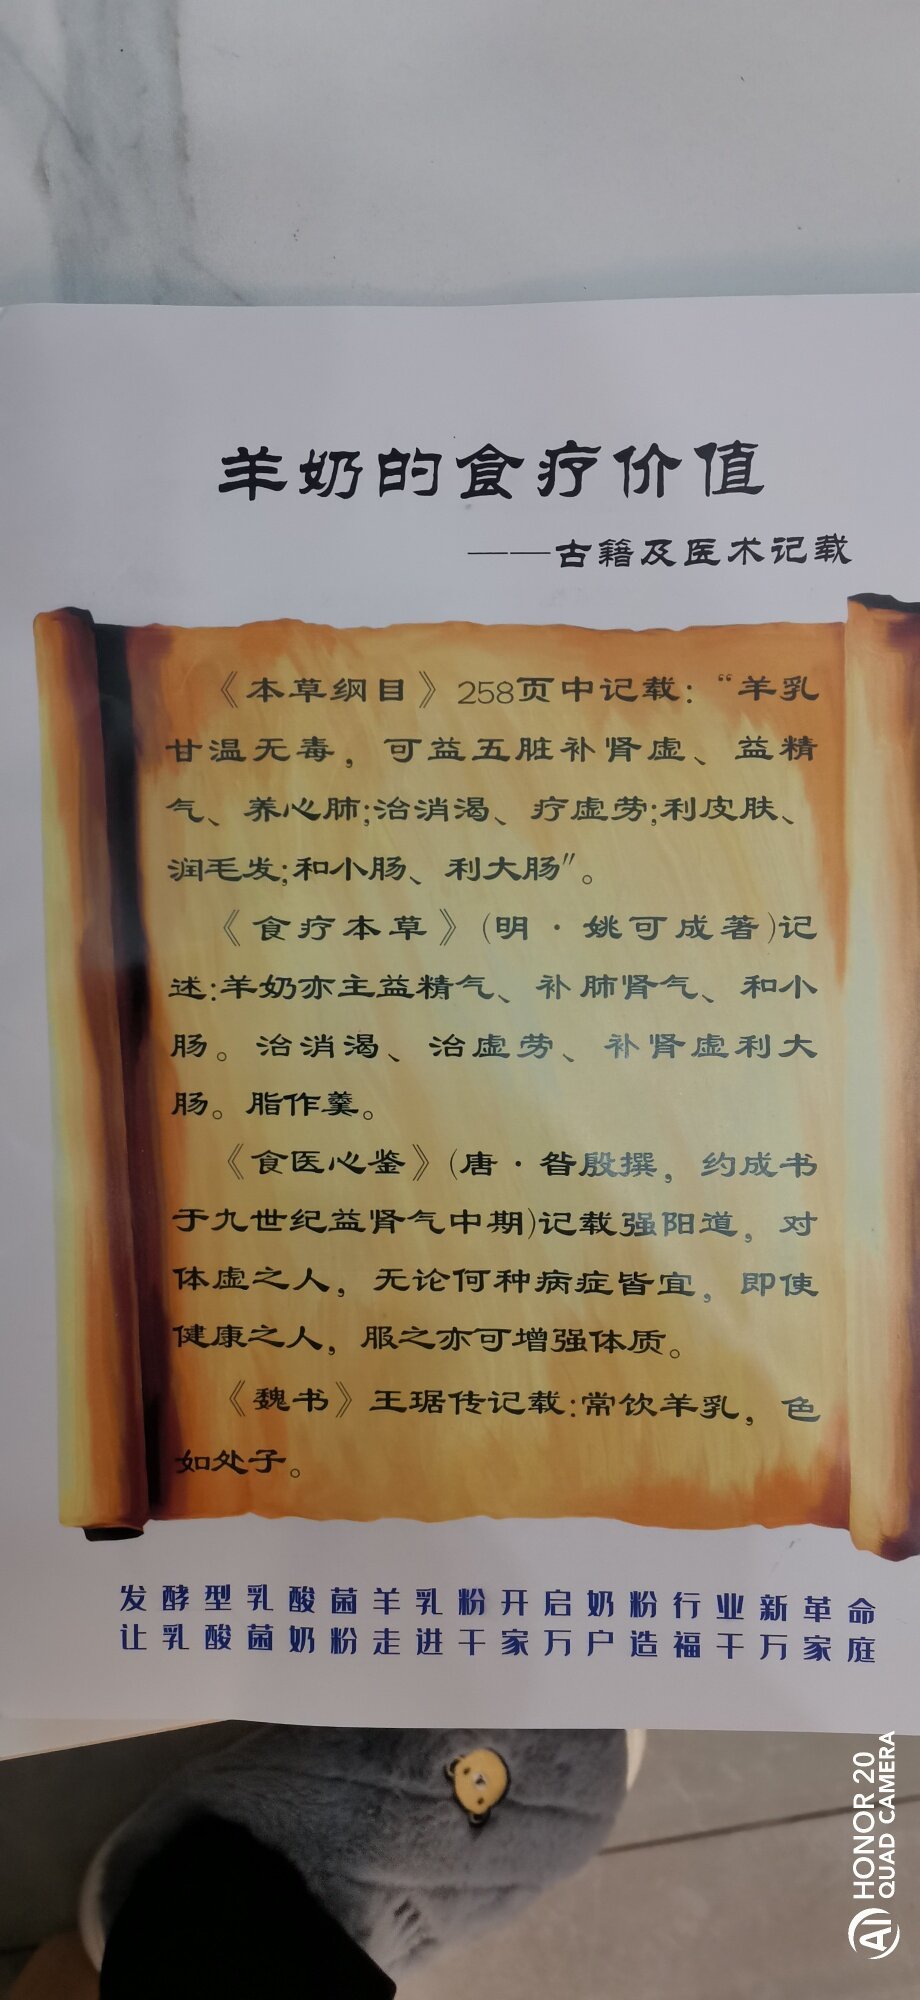 羊奶的食疗价值
——古籍及医术记载
《本草纲目》258页中记载：“羊乳
甘温无毒，可益五脏补肾虚、益精
气、养心肺;治消渴、疗虚劳;利皮肤、
润毛发;和小肠、利大肠”。
《食疗本草》(明·姚可成著)记
述:羊奶亦主益精气、补肺肾气、和小
肠。治消渴、治虚劳、补肾虚利大
肠。脂作羹。
《食医心鉴》(唐·昝殷撰，约成书
于九世纪益肾气中期)记载强阳道，对
体虚之人，无论何种病症皆宜，即使
健康之人，服之亦可增强体质。
《魏书》王琚传记载:常饮羊乳，色
如处子。
发酵型乳酸菌羊乳粉开启奶粉行业新革命
让乳酸菌奶粉走进千家万户造福千万家庭
AI HONOR 20
QUAD CAMERA